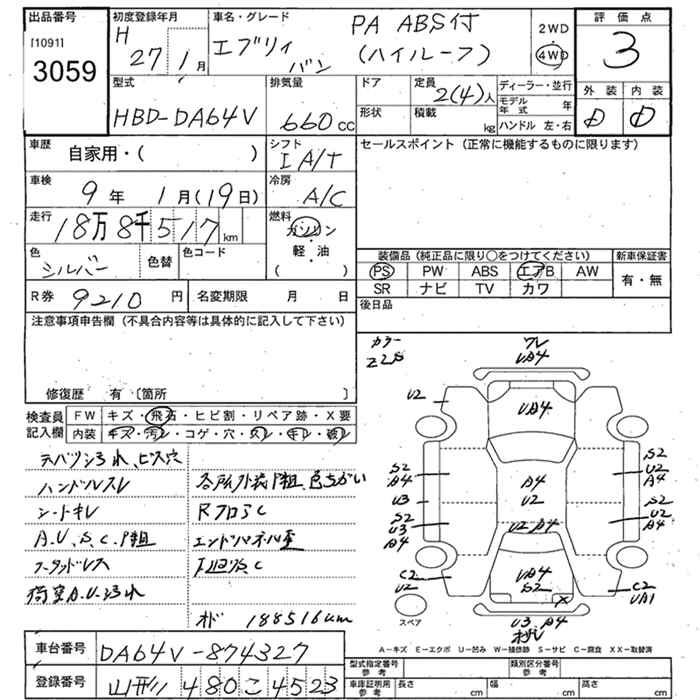 出品番号
[1091]
3059
初度登録年月
H 27年 1月
車名・グレード
エブリィ バン
PA ABS付
(ハイルーフ)
2WD
4WD
評価点
3
外装 内装
D D
型式
HBD-DA64V
排気量
660cc
ドア
形状
定員
2(4)人
積載
kg
ディーラー・並行
モデル年式 年
ハンドル 左・右
車歴
自家用・( )
シフト
IA/T
セールスポイント (正常に機能するものに限ります)
車検
9年 1月 (19日)
冷房
A/C
走行
18万8千517km
燃料
ガソリン
軽・油
( )
色
シルバー
色替
色コード
装備品 (純正品に限り○をつけてください)
PS PW ABS エアB AW
SR ナビ TV カワ
新車保証書
有・無
R券
9210円
名変期限 月 日
後日品
注意事項申告欄 (不具合内容等は具体的に記入して下さい)
修復歴 有 〔箇所 〕
検査員記入欄
FW キズ・飛石・ヒビ割・リペア跡・X要
内装 キズ・汚レ・コゲ・穴・スレ・キレ・破レ
ハンドルスレ
シートキレ
A.U.S.C.P組
荷室A.U.汚れ
S.C
メーター 188516km
カラー
Z2S
ワレ
UA4
U2
UA4
S2
A4
U3
S2
U3
A4
A4
U2
U2 A4
S2
U2
A4
S2
U2
A4
C2
U2
UA4
S2
X
C2
UA1
U3 A4
スペア
A-キズ E-エクボ U-凹み W-補修跡 S-サビ C-腐食 XX-取替済
車台番号
DA64V-874327
登録番号
山形 480 こ 4523
型式指定番号
参考
類別区分番号
参考
車庫証明用
参考
長さ cm
幅 cm
高さ cm